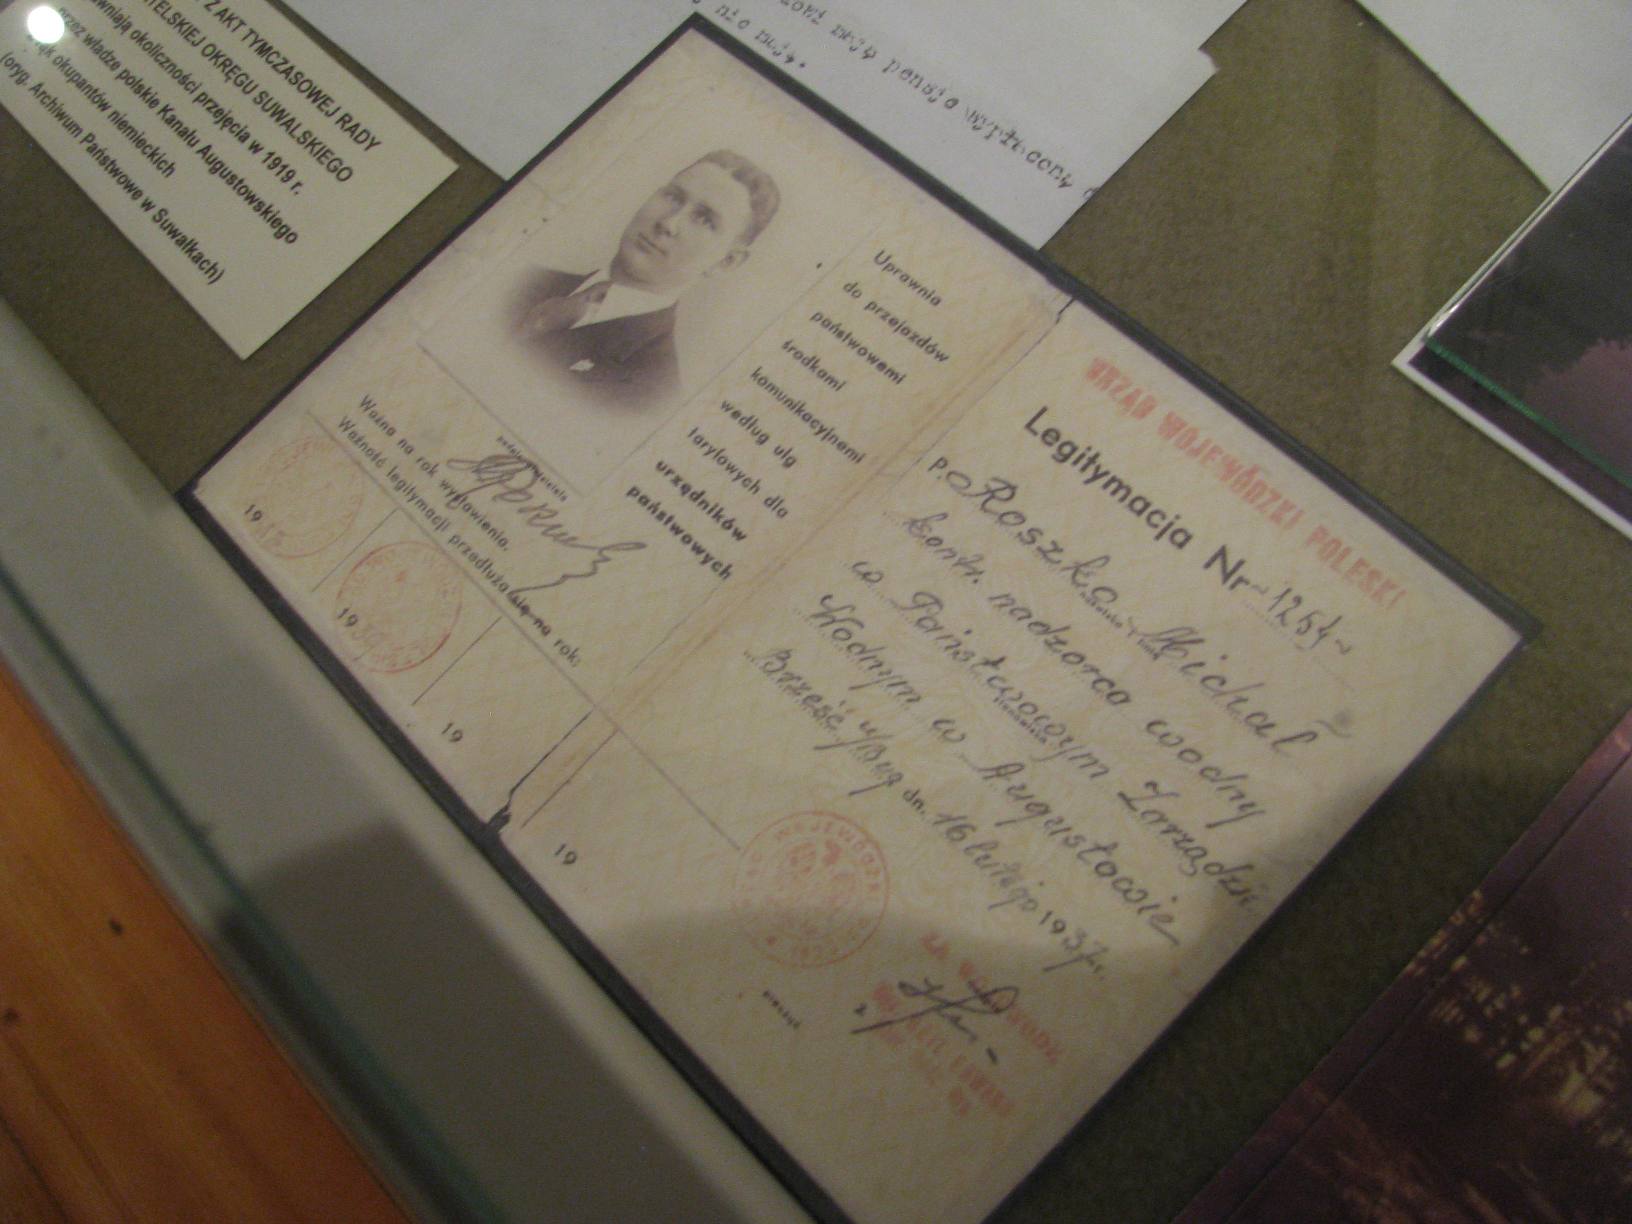 Z AKT TYMCZASOWEJ RADY
OKRĘGU SUWALSKIEGO
okoliczności przejęcia w 1919 r.
przez władze polskie Kanału Augustowskiego
okupantów niemieckich
(oryg. Archiwum Państwowe w Suwałkach)
mają pensję wypłconą
nie mają.
Uprawnia
do przejazdów
państwowemi
środkami
komunikacyjnemi
według ulg
taryfowych dla
urzędników
państwowych
Ważna na rok wystawienia.
Ważność legitymacji przedłuża się na rok:
19
19
19
19
URZĄD WOJEWÓDZKI POLESKI
Legitymacja Nr 1254
P. Roszko Michał
kontr. nadzorca wodny
w Państwowym Zarządzie
Wodnym w Augustowie
Brześć n/Bug dn. 16 lutego 1937 r.
pieczęć
ZA WOJEWODĘ